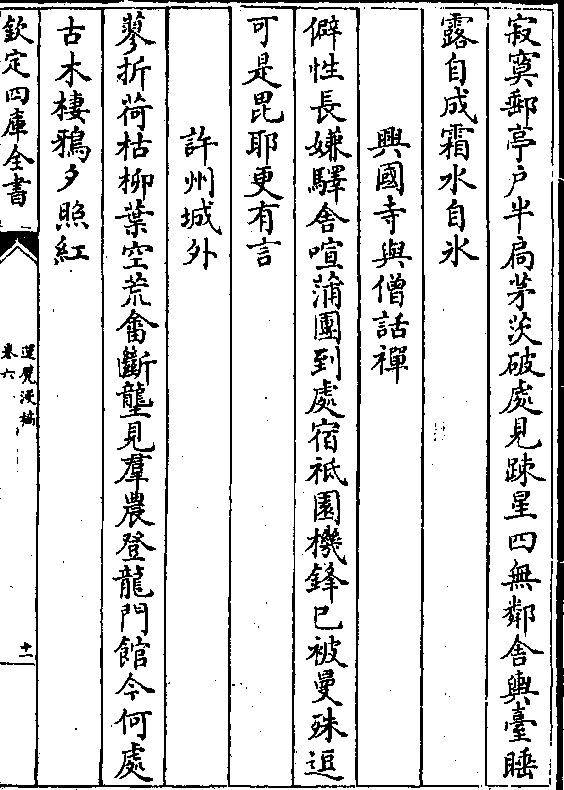 寂寞郵亭戶半扃茅茨破處見踈星四無鄰舍輿臺睡
露自成霜水自氷
興國寺與僧話禪
僻性長嫌驛舍喧蒲團到處宿祗園機鋒已被曼殊逗
可是毘耶更有言
許州城外
蓼折荷枯柳葉空荒畬斷壟見羣農登龍門館今何處
古木棲鴉夕照紅
欽定四庫全書
卷六
十一